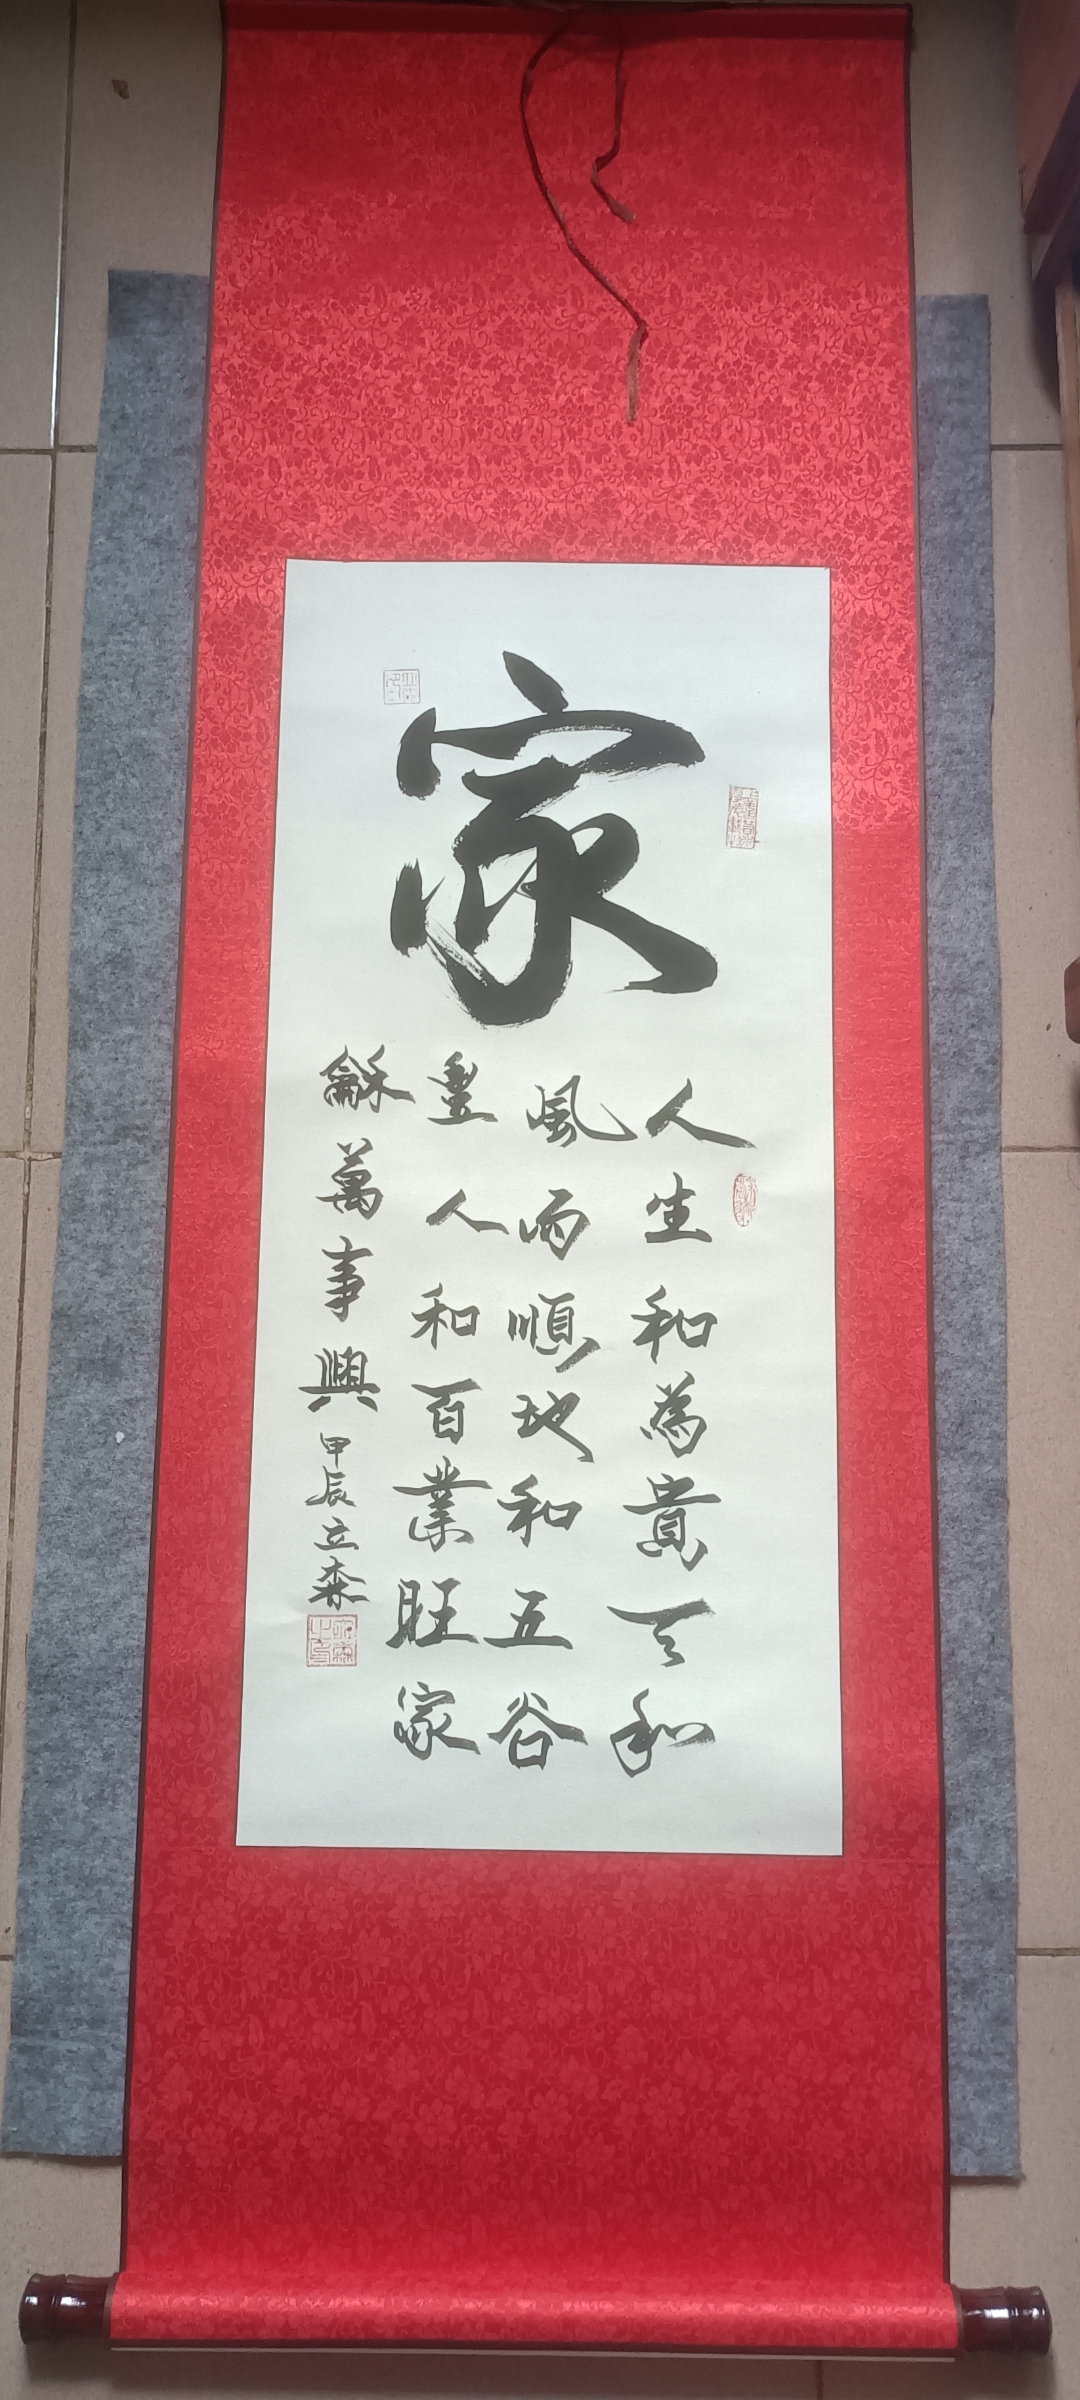 家
人生和為貴天和
風雨順地和五谷
豐人和百業旺家
龢萬事興
甲辰立森